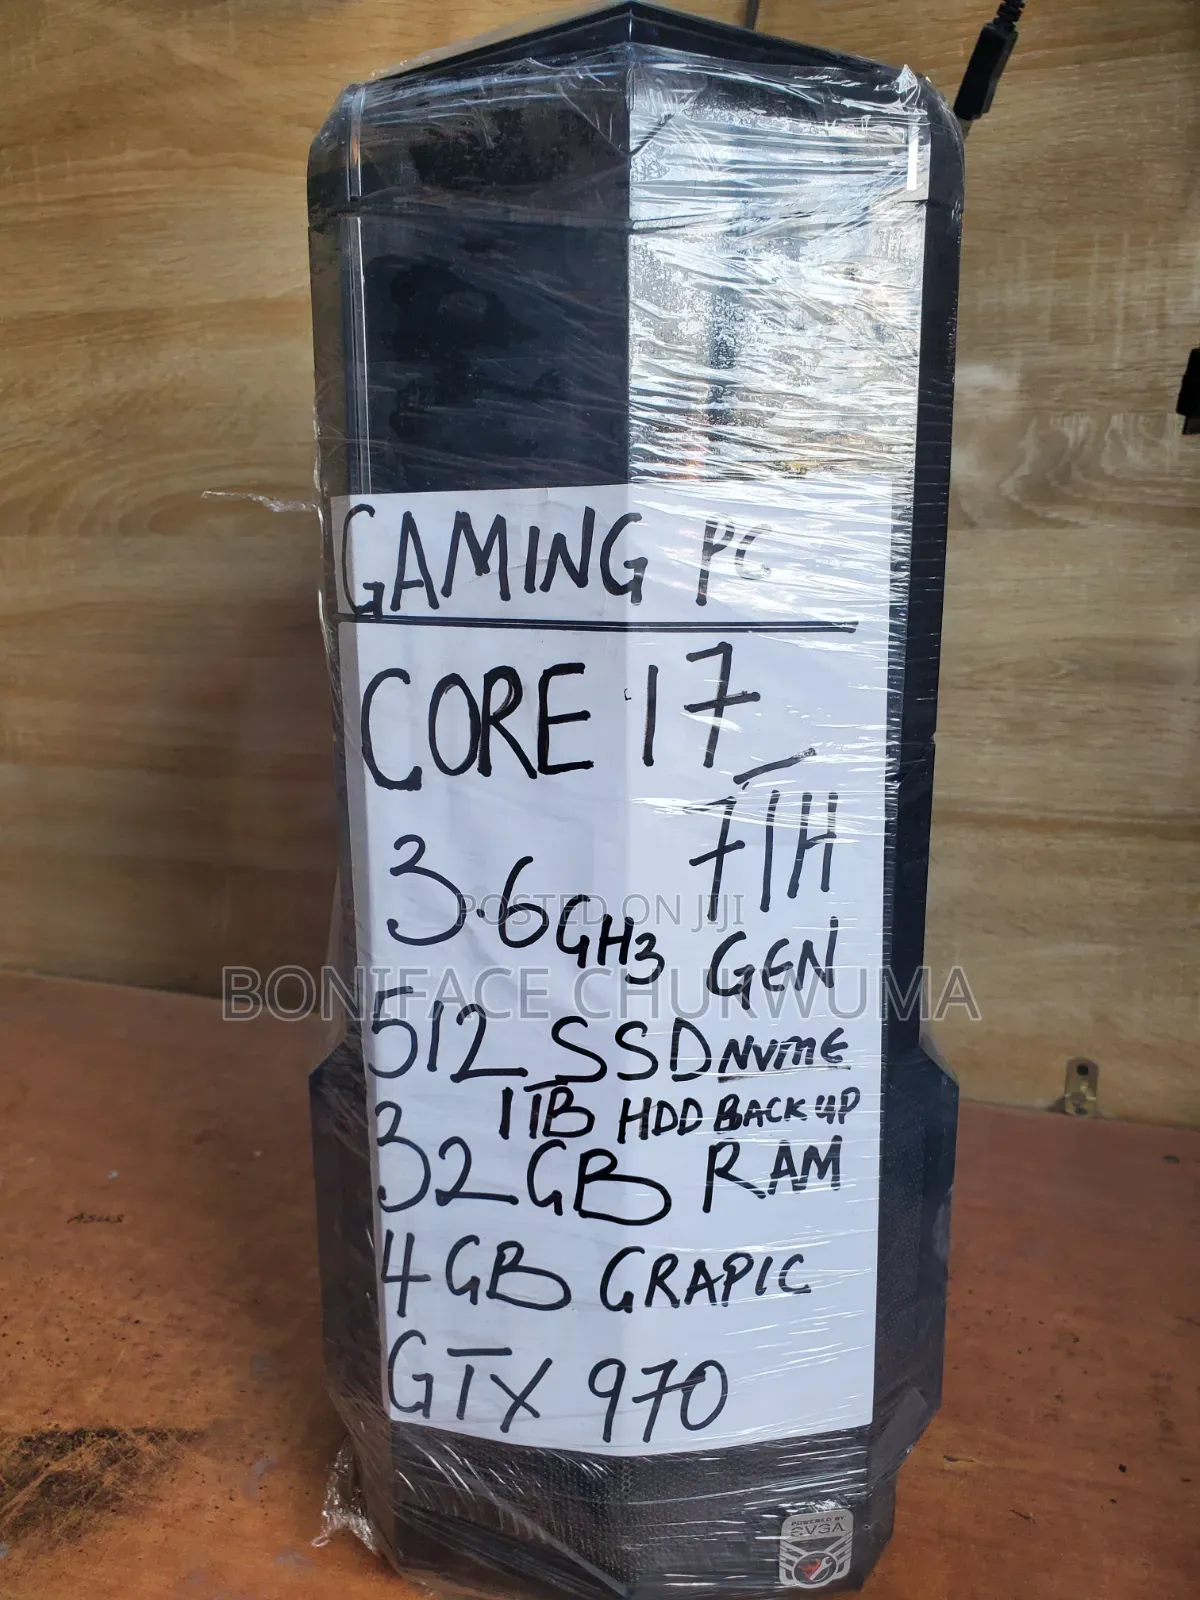 GAMING PC
CORE i7
7TH
3.6GHz GEN
POSTED ON JIJI
BONIFACE CHUKWUMA
512 SSD NVME
1TB HDD BACK UP
32GB RAM
4GB GRAPIC
GTX 970
ASUS
POWERED BY
EVGA